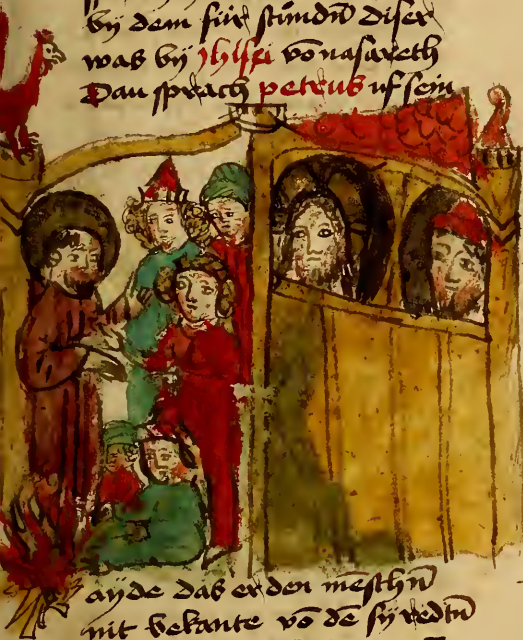 by dem für stunden diser
was by ihesu vō nasareth
Dau sprach petrus uf sein
ayde das er den mēschn̄
nit bekante vō dē sy redtn̄